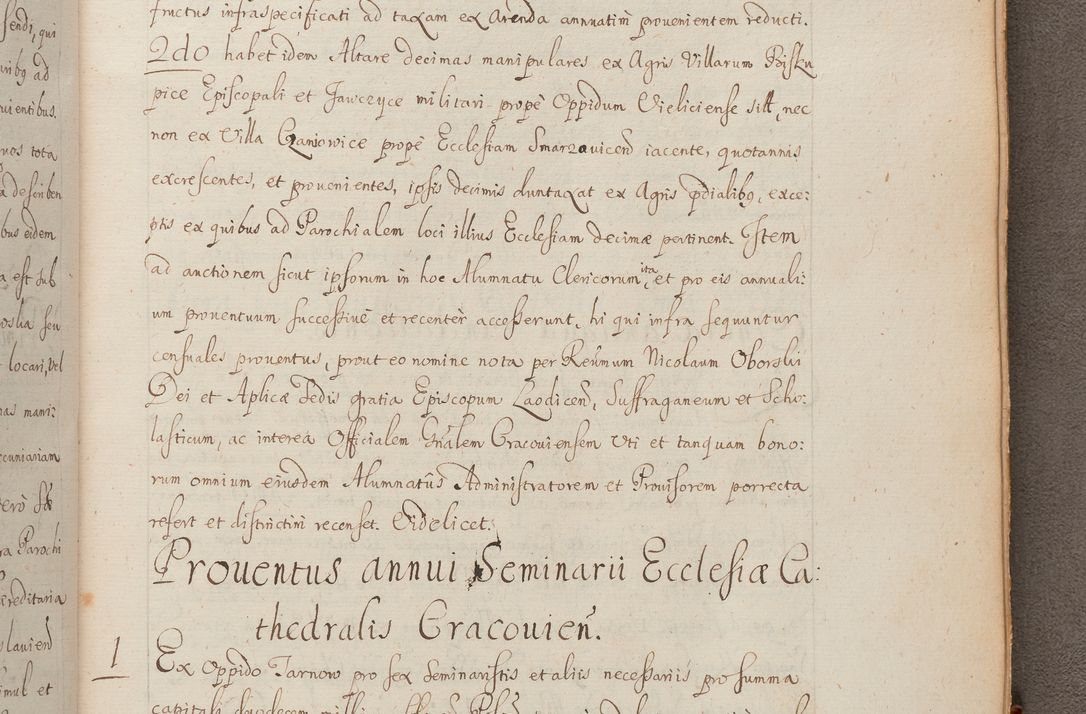 fructus infraspecificati ad taxam ex Arenda annuatim prouenientem reducti.
2do habet idem Altare decimas manipulares ex Agris Villarum Bisku
pice Episcopali et Jawczyce militari propè Oppidum Vieliciense sitt, nec
non ex Villa Czaniowice propè Ecclesiam Smarzouicen̄ iacente, quotannis
excrescentes, et prouenientes, ipsis decimis duntaxat ex Agris p̄dialibq, exce:
ptis ex quibus ad Parochialem loci illius Ecclesiam decimæ pertinent. Item
ad auctionem sicut ipsorum in hoc Alumnatu Clericorum, ita et pro eis annuali:
um prouentuum successiuè et recentèr accesserunt, hi qui infra sequuntur
censuales prouentus, prout eo nomine nota per Reu̇mum Nicolaum Oborski
Dei et Aplicæ Sedis gratia Episcopum Laodicen̄, Suffraganeum et Scho:
lasticum, ac interea Officialem Gn̄alem Cracouiensem Vti et tanquam bono:
rum omnium eiusdem Alumnatûs Administratorem et Prouisorem porrecta
refert et distinctim recenset. Videlicet.
Prouentus annui Seminarii Ecclesiæ Ca:
thedralis Cracouien̄.
1 Ex Oppido Tarnow pro sex Seminaristis et aliis necessariis pro summa
capitali duodecem
sendi, qui
ad
uientibus.
tota
bus eidem
a est sub
seu
locari, vel
mani:
cuniariam
Parochi
ereditaria
slauien̄
simul et